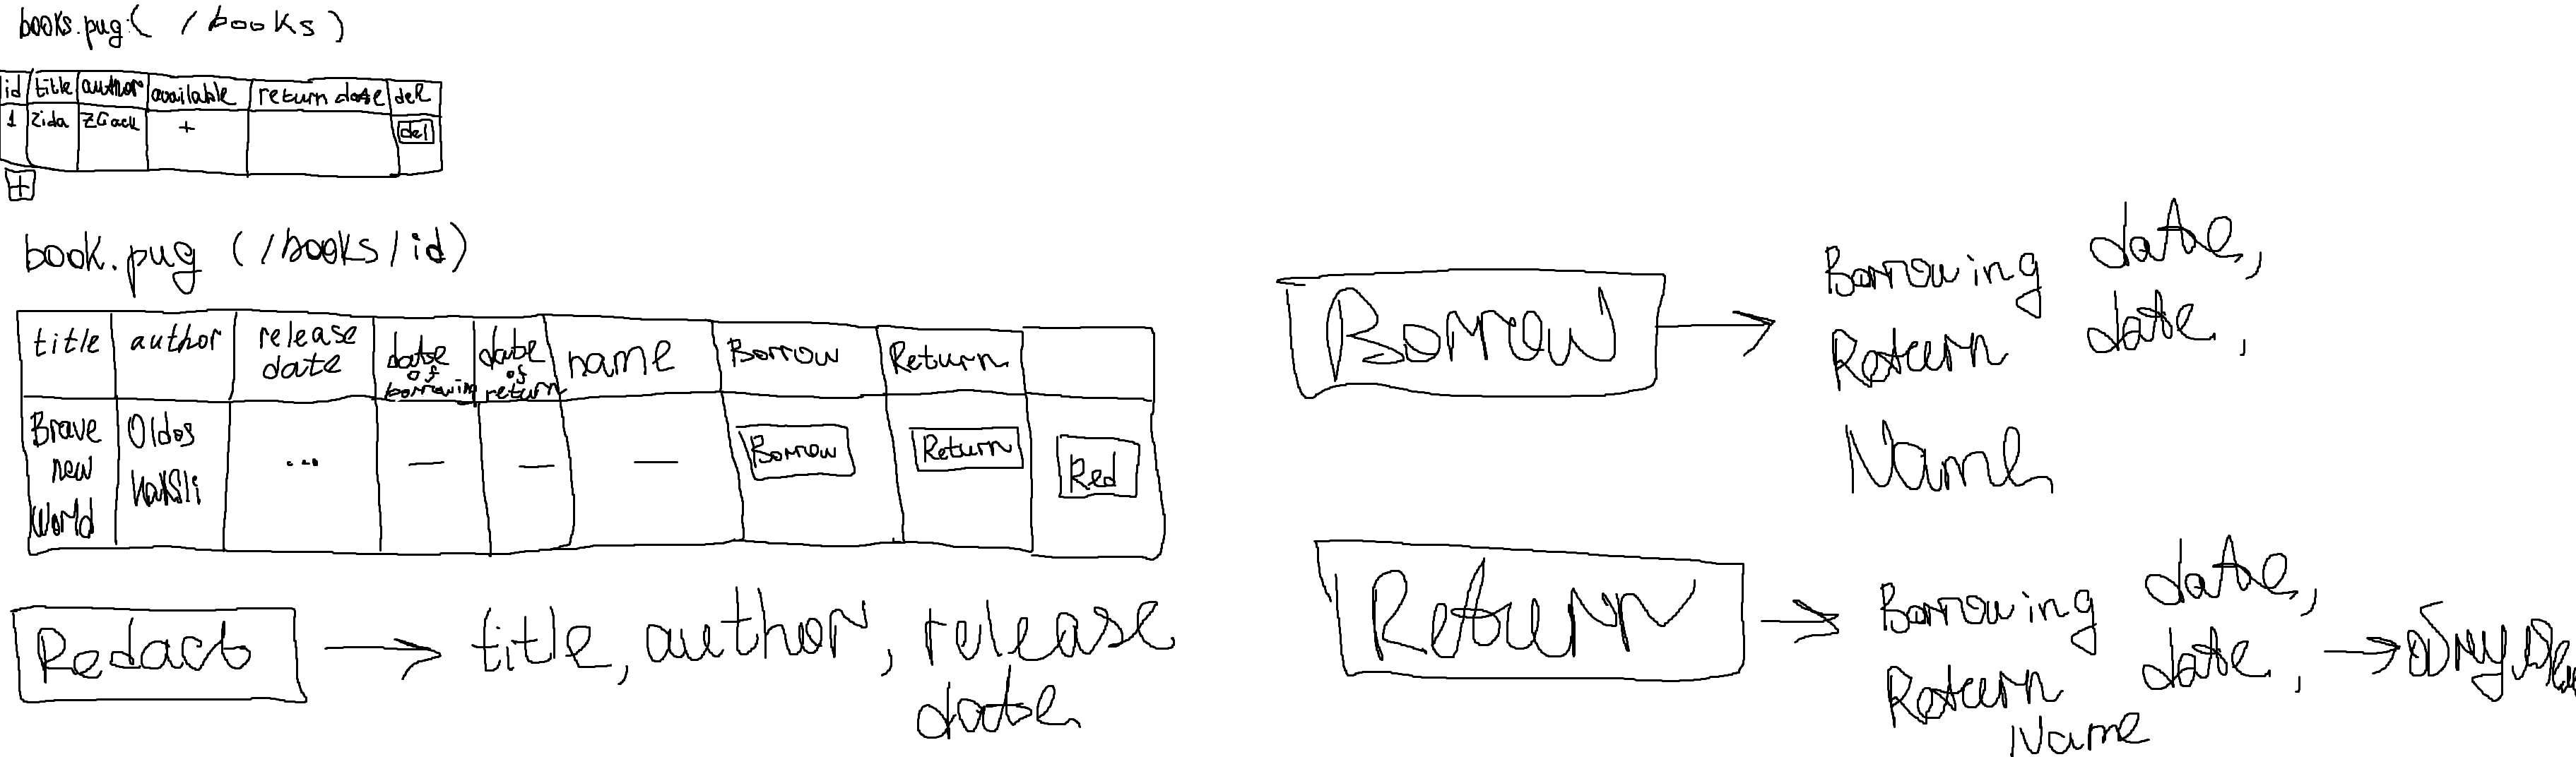 books.pug ( /books )
id title author available return date del
1 Zida ZGack + del
+
book.pug (/books/id)
title author release date date of borrowing date of return name Borrow Return
Brave new World Oldos Haksli ... — — — Borrow Return Red
Redact → title, author, release date
Borrow → Borrowing date,
Return date,
Name
Return → Borrowing date,
Return date,
Name